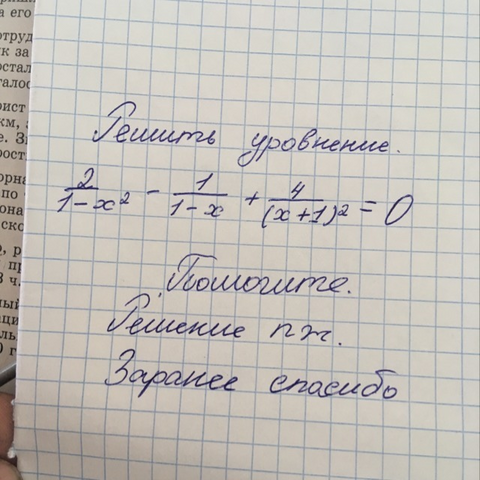 Решить уровнение.
2/(1-x²) - 1/(1-x) + 4/(x+1)² = 0
Помогите.
Решение пж.
Заранее спасибо